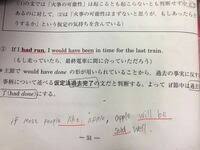 (1)の文では「火事の可能性」は起こるとも起こらないとも判断せず
あるのに対して，ほでは「火事の可能性はまずないと思うが，もしあったら」
という仮定的な気持ちを含んでいる)
② If I had run, I would have been in time for the last train.
(もし走っていたら，最終電車に間に合っていただろう)
主節で would have done の形が用いられていることから，過去の事実に反す
事柄について述べる仮定法過去完了の文だと判断する。よって if 節中は過去
了(had done)にする。
if most people like, apple, apple will be
sold well.
— 31 —